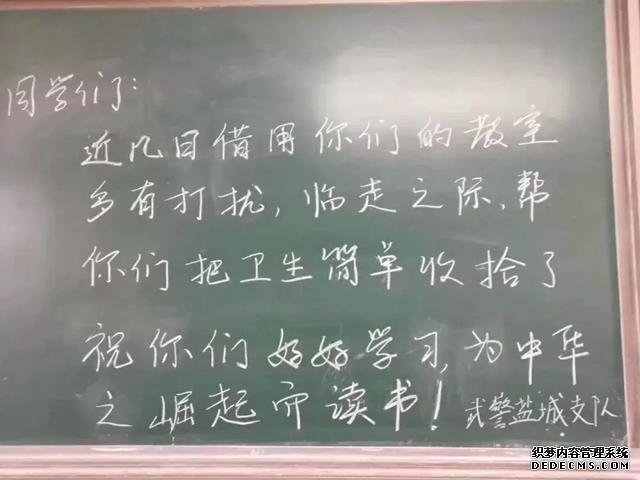 同学们：
近几日借用你们的教室
多有打扰，临走之际，帮
你们把卫生简单收拾了
祝你们好好学习，为中华
之崛起而读书！ 武警盐城支队
织梦内容管理系统
DEDECMS.COM